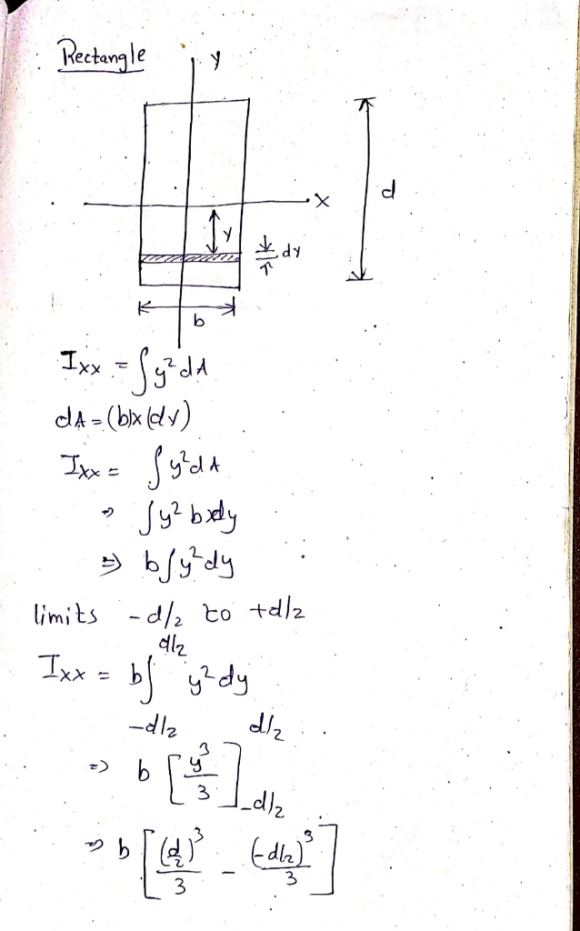 Rectangle
y
x
d
y
dy
b
Ixx = ∫y²dA
dA = (b)x(dy)
Ixx = ∫y²dA
⇒ ∫y² bxdy
⇒ b∫y²dy
limits -d/2 to +d/2
Ixx = b∫ d/2 -d/2 y²dy
⇒ b [y³/3] d/2 -d/2
⇒ b [(d/2)³/3 - (-d/2)³/3]